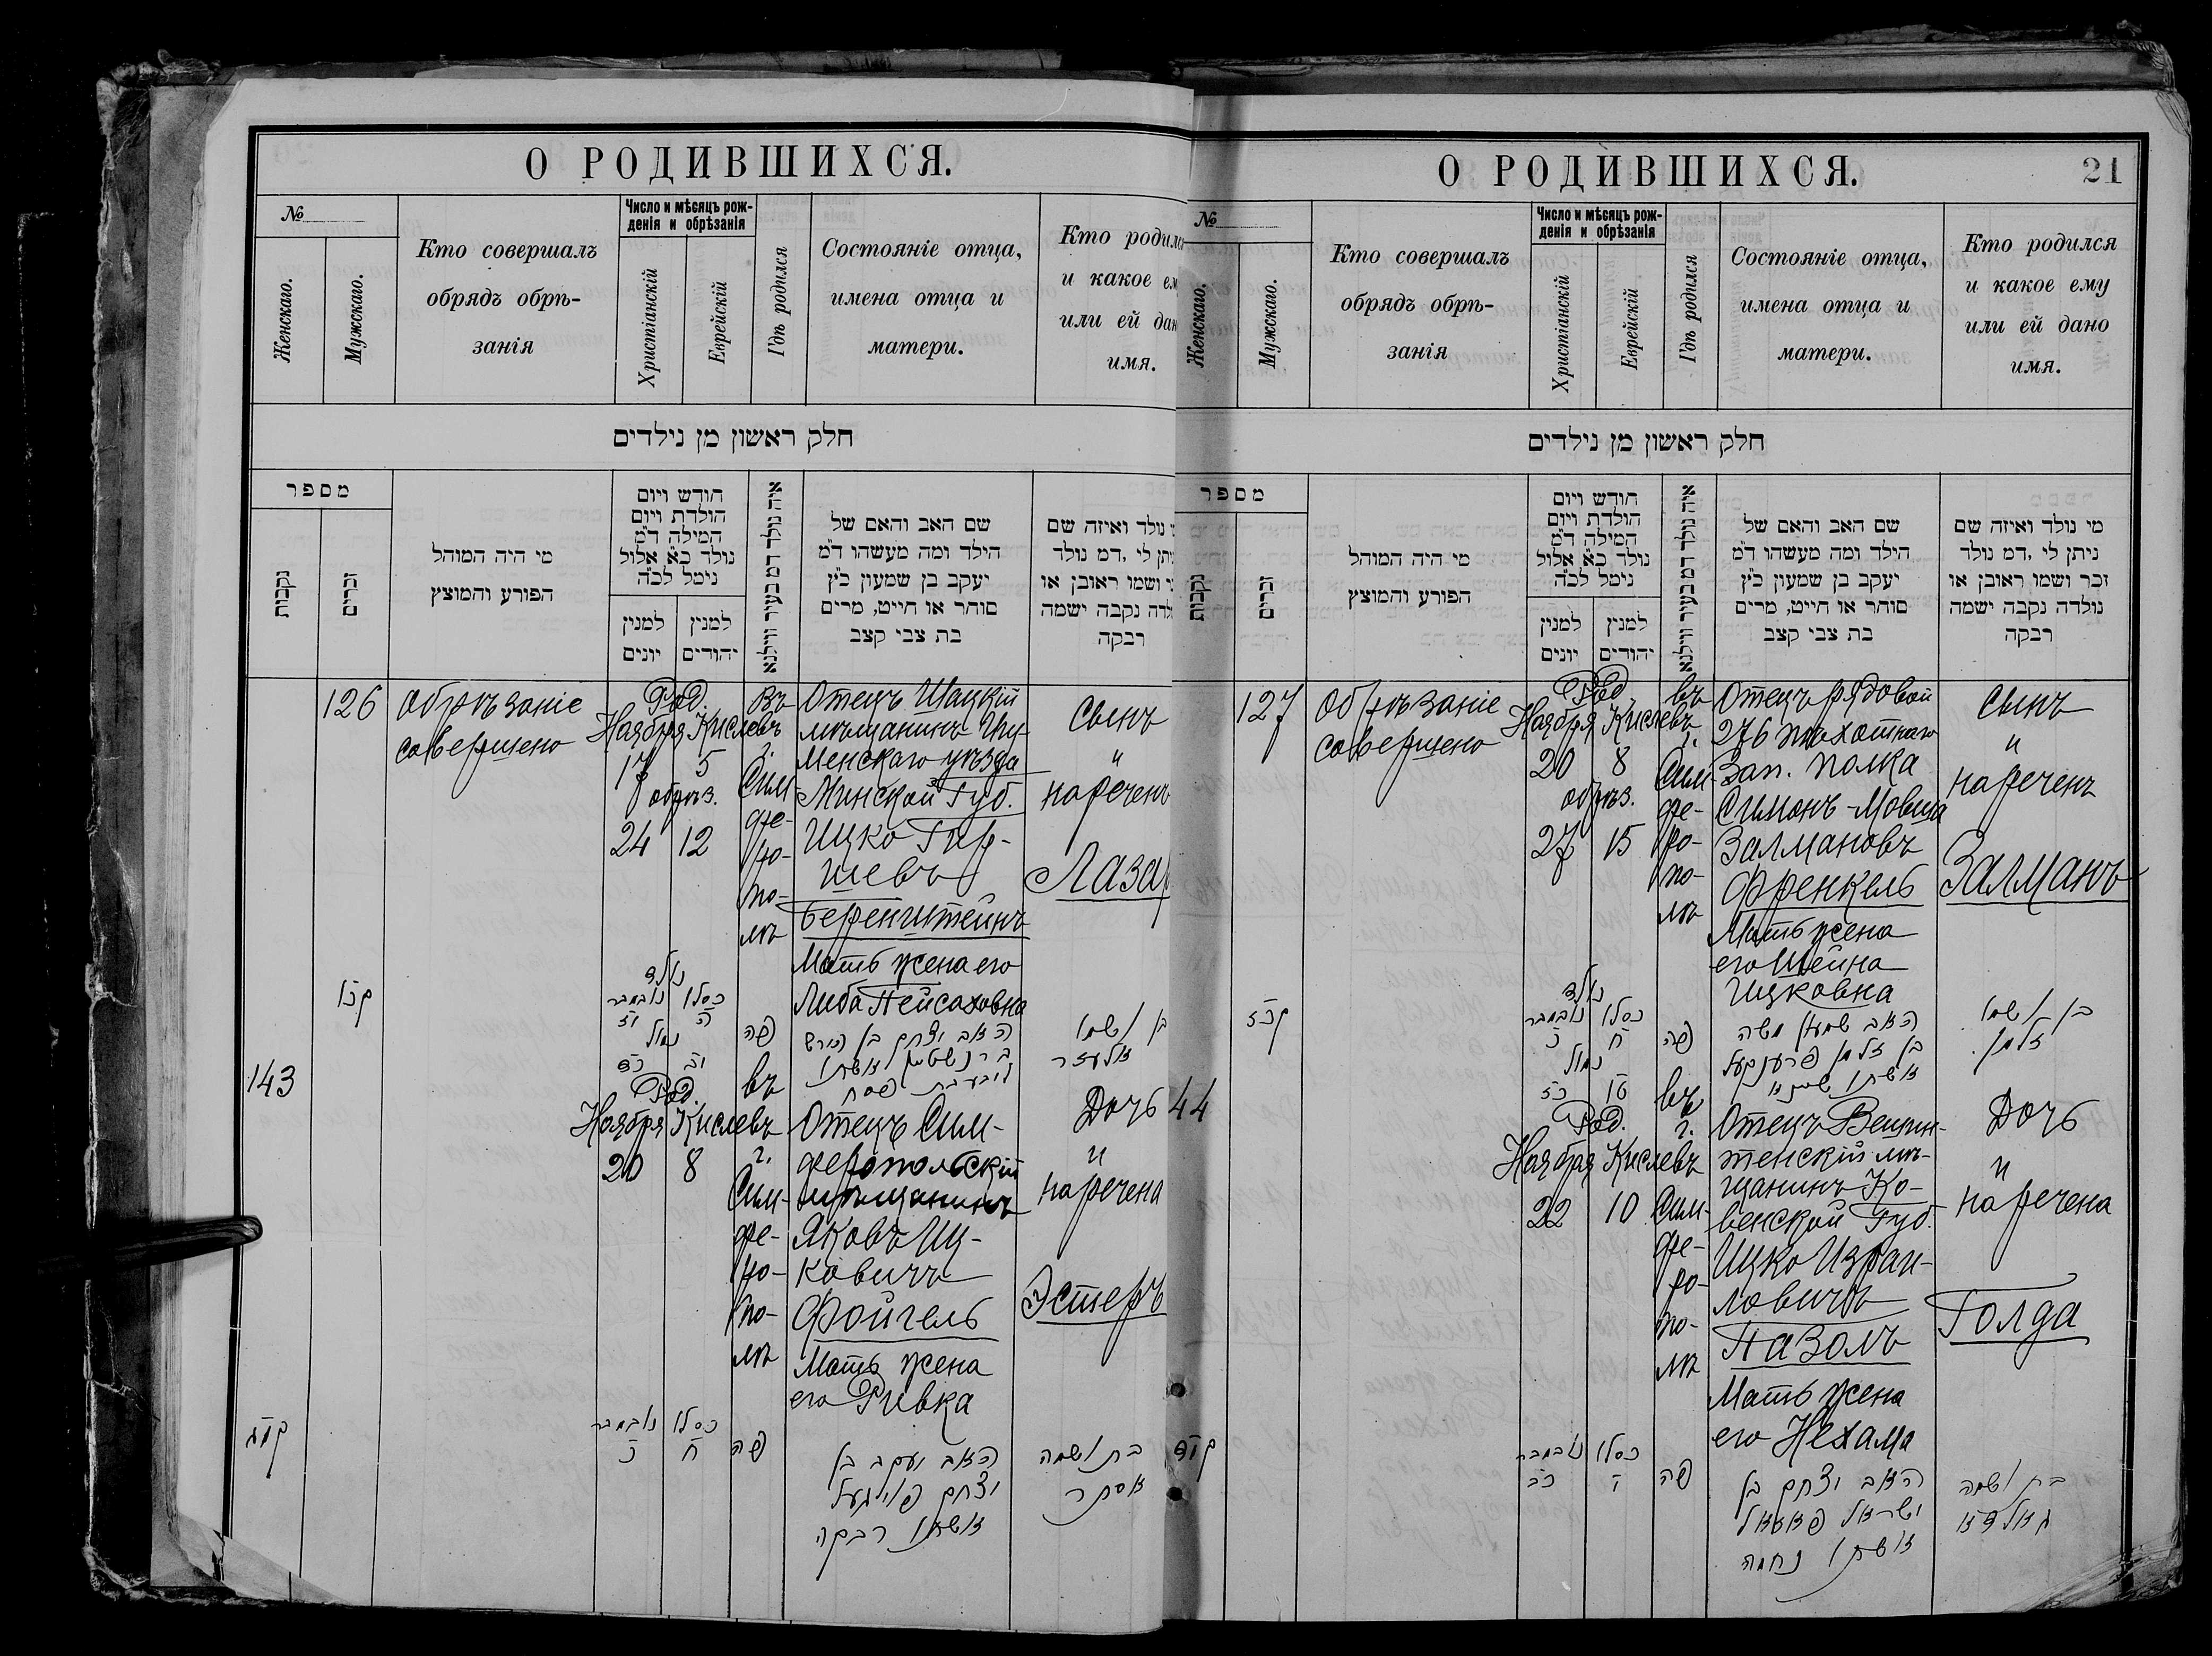 О РОДИВШИХСЯ.
№
Женскаго.
Мужскаго.
Кто совершалъ
обрядъ обрѣ-
занія
Число и мѣсяцъ рож-
денія и обрѣзанія
Христіанскій
Еврейскій
Гдѣ родился
Состояніе отца,
имена отца и
матери.
Кто родился
и какое ему
или ей дано
имя.
חלק ראשון מן נילדים
מספר
נקבות
זכרים
מי היה המוהל
הפורע והמוצץ
חודש ויום
הולדת ויום
המילה ד״מ
נולד כ״א אלול
נימל לכ״ה
למנין
יונים
למנין
יהודים
איה נולד דמ בעיר ווילנא
שם האב והאם של
הילד ומה מעשהו ד״מ
יעקב בן שמעון כ״ץ
סוחר או חייט, מרים
בת צבי קצב
נולד ואיזה שם
ניתן לי, דמ נולד
ושמו ראובן או
נולדה נקבה ישמה
רבקה
126
Обрѣзаніе
совершено
Род.
Ноября Кислевъ
17 5
обрѣз.
24 12
Въ
г.
Сим-
фе-
ро-
по-
лѣ
Отецъ Шацкій
мѣщанинъ Игу-
менскаго уѣзда
Минской Губ.
Ицко Гир-
шевъ
Беренштейнъ
Мать жена его
Либа Пейсаховна
Сынъ
и
нареченъ
Лазар
קכו
נולד
נובמבר כסלו
יז ה
נימול
כד יב
פה
האב יצחק בן הירש
ברנשטיין ואשתו
ליבע בת פסח
בן ושמו
אלעזר
143
Род.
Ноября Кислевъ
20 8
въ
г.
Сим-
фе-
ро-
по-
лѣ
Отецъ Сим-
феропольскій
мѣщанинъ
Яковъ Иц-
ковичъ
Фойгель
Мать жена
его Ривка
Дочь
и
наречена
Эстеръ
קמג
נובמבר כסלו
כ ח
פה
האב יעקב בן
יצחק פויגעל
ואשתו רבקה
בת ושמה
אסתר
О РОДИВШИХСЯ.
21
№
Женскаго.
Мужскаго.
Кто совершалъ
обрядъ обрѣ-
занія
Число и мѣсяцъ рож-
денія и обрѣзанія
Христіанскій
Еврейскій
Гдѣ родился
Состояніе отца,
имена отца и
матери.
Кто родился
и какое ему
или ей дано
имя.
חלק ראשון מן נילדים
מספר
נקבות
זכרים
מי היה המוהל
הפורע והמוצץ
חודש ויום
הולדת ויום
המילה ד״מ
נולד כ״א אלול
נימל לכ״ה
למנין
יונים
למנין
יהודים
איה נולד דמ בעיר ווילנא
שם האב והאם של
הילד ומה מעשהו ד״מ
יעקב בן שמעון כ״ץ
סוחר או חייט, מרים
בת צבי קצב
מי נולד ואיזה שם
ניתן לי, דמ נולד
זכר ושמו ראובן או
נולדה נקבה ישמה
רבקה
127
Обрѣзаніе
совершено
Род.
Ноября Кислевъ
20 8
обрѣз.
27 15
въ
г.
Сим-
фе-
ро-
по-
лѣ
Отецъ рядовой
276 пѣхотнаго
Зап. полка
Симонъ-Мовша
Залмановъ
Френкель
Мать жена
его Шейна
Ицковна
Сынъ
и
нареченъ
Залманъ
קכז
נולד
נובמבר כסלו
כ ח
נימול
כז טו
פה
האב שמעון משה
בן זלמן פרענקעל
ואשתו שיינא
בן ושמו
זלמן
44
Род.
Ноября Кислевъ
22 10
въ
г.
Сим-
фе-
ро-
по-
лѣ
Отецъ Вешин-
тенскій мѣ-
щанинъ Ко-
венской Губ.
Ицко Израи-
ловичъ
Пазолъ
Мать жена
его Нехама
Дочь
и
наречена
Голда
קמד
נובמבר כסלו
כב י
פה
האב יצחק בן
ישראל פאזאל
ואשתו נחמה
בת ושמה
גאלדא